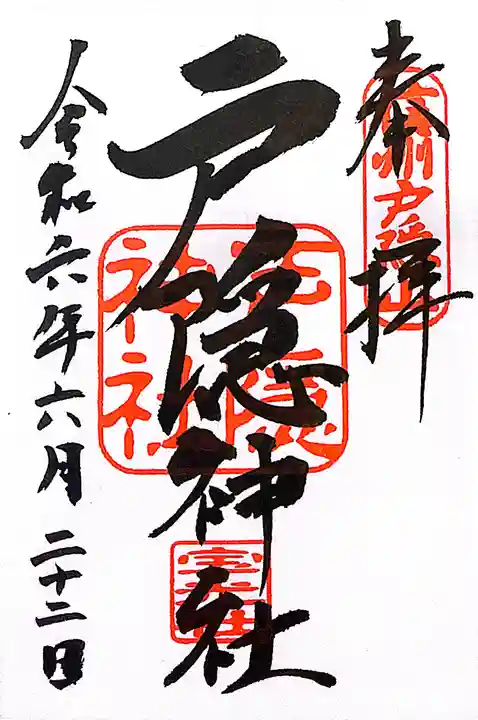 奉拝
信州戸隠山
戸隠神社
戸隠
神社
宝光社
令和六年六月二十二日